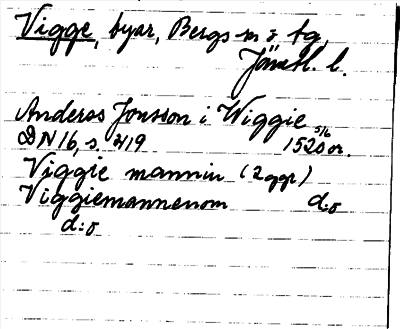 Vigge, byar, Bergs sn o. tg,
Jämtl. l.
Anderss Jonsson i Wiggie
DN 16, s. 219 5/6 1520 or.
Viggie mannin (2 ggr)
Viggiemannenom d:o
d:o